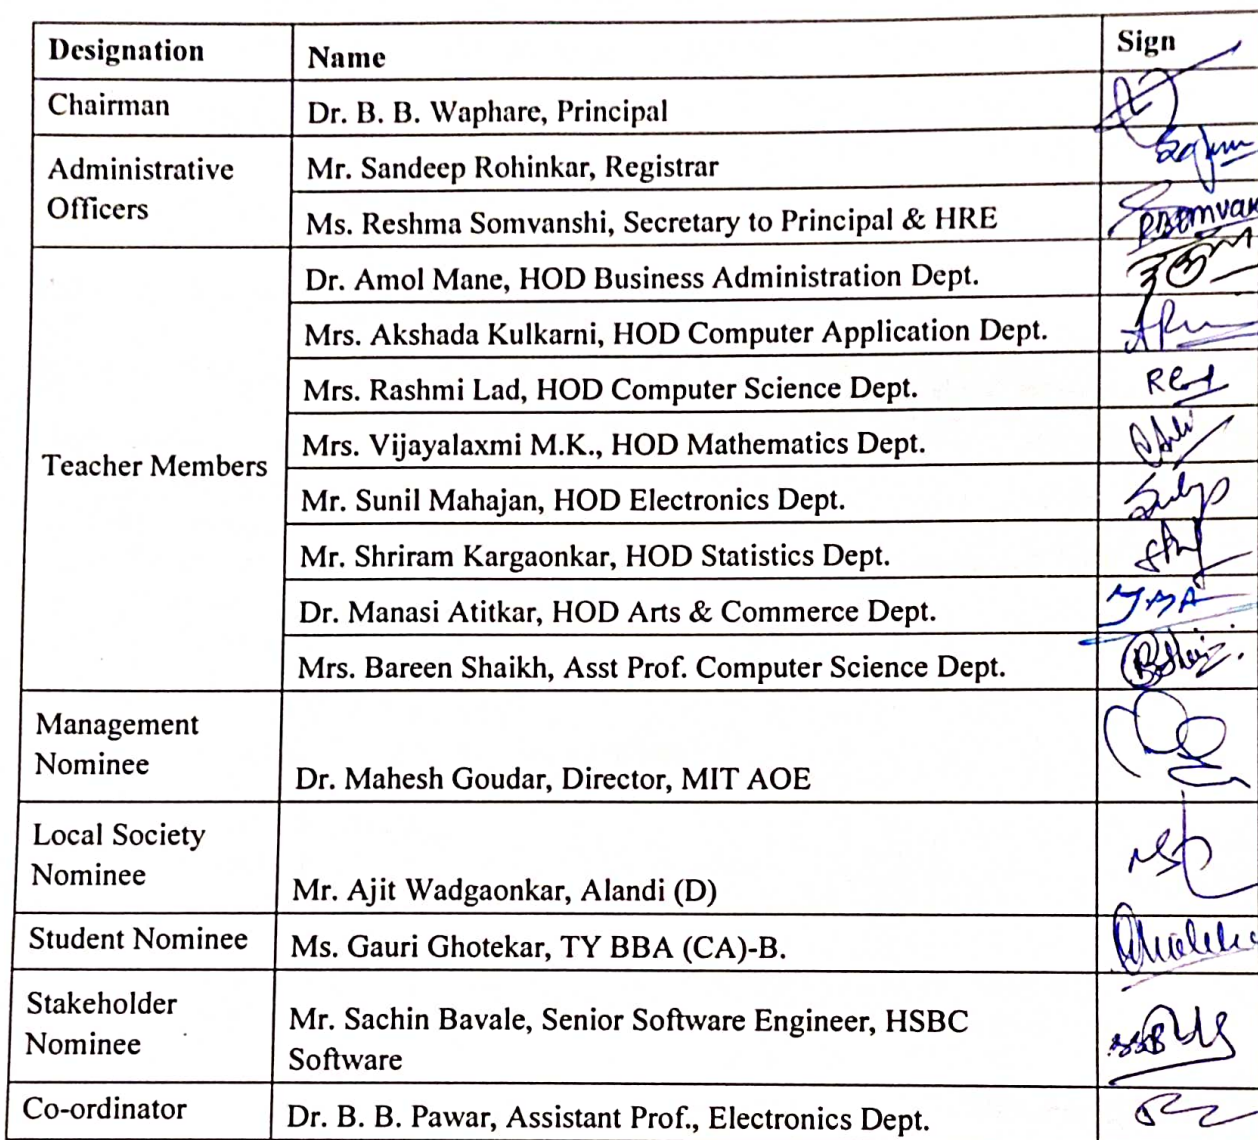 Designation Name Sign
Chairman Dr. B. B. Waphare, Principal
Administrative
Officers
Mr. Sandeep Rohinkar, Registrar
Ms. Reshma Somvanshi, Secretary to Principal & HRE
Teacher Members
Dr. Amol Mane, HOD Business Administration Dept.
Mrs. Akshada Kulkarni, HOD Computer Application Dept.
Mrs. Rashmi Lad, HOD Computer Science Dept.
Mrs. Vijayalaxmi M.K., HOD Mathematics Dept.
Mr. Sunil Mahajan, HOD Electronics Dept.
Mr. Shriram Kargaonkar, HOD Statistics Dept.
Dr. Manasi Atitkar, HOD Arts & Commerce Dept.
Mrs. Bareen Shaikh, Asst Prof. Computer Science Dept.
Management
Nominee
Dr. Mahesh Goudar, Director, MIT AOE
Local Society
Nominee
Mr. Ajit Wadgaonkar, Alandi (D)
Student Nominee Ms. Gauri Ghotekar, TY BBA (CA)-B.
Stakeholder
Nominee
Mr. Sachin Bavale, Senior Software Engineer, HSBC
Software
Co-ordinator Dr. B. B. Pawar, Assistant Prof., Electronics Dept.